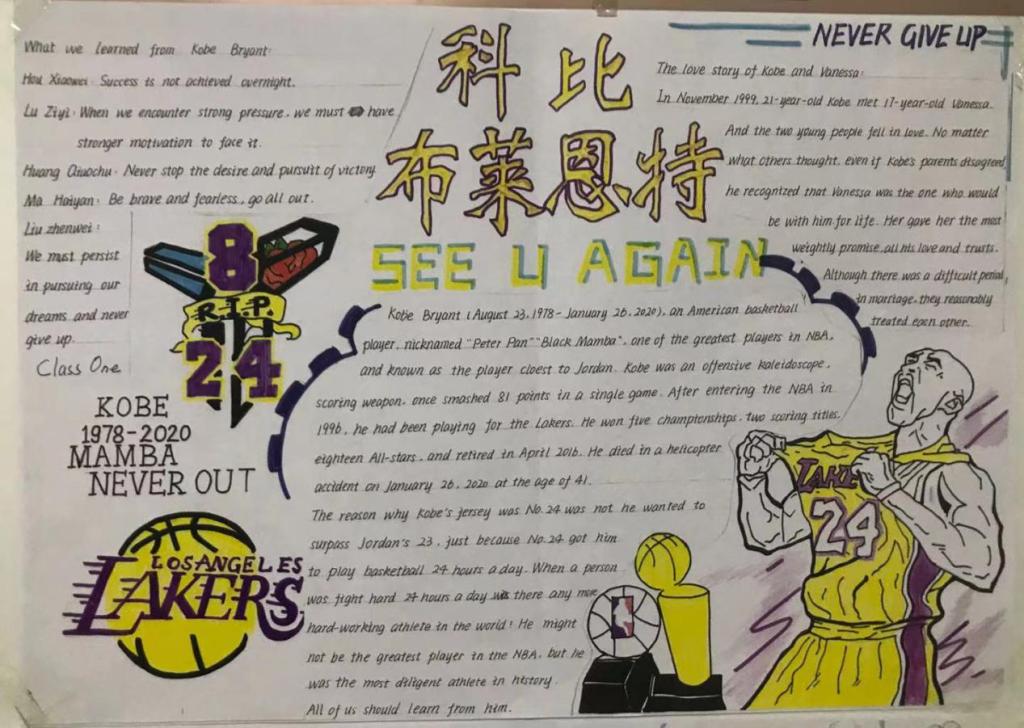 What we learned from Kobe Bryant:
Hou Xiaowei: Success is not achieved overnight.
Lu Ziyi: When we encounter strong pressure, we must have
stronger motivation to face it.
Huang Qiuchu: Never stop the desire and pursuit of victory
Ma Haiyan: Be brave and fearless, go all out.
Liu zhenwei:
We must persist
in pursuing our
dreams and never
give up.
Class One
8
R.I.P.
24
KOBE
1978-2020
MAMBA
NEVER OUT
LOS ANGELES
LAKERS
科比
布莱恩特
SEE U AGAIN
Kobe Bryant (August 23, 1978 - January 26, 2020), an American basketball
player, nicknamed "Peter Pan" "Black Mamba", one of the greatest players in NBA,
and known as the player cloest to Jordan. Kobe was an offensive kaleidoscope,
scoring weapon, once smashed 81 points in a single game. After entering the NBA in
1996, he had been playing for the Lakers. He won five championships, two scoring titles,
eighteen All-stars, and retired in April 2016. He died in a helicopter
accident on January 26, 2020 at the age of 41.
The reason why Kobe's jersey was No.24 was not he wanted to
surpass Jordan's 23, just because No.24 got him
to play basketball 24 hours a day. When a person
was fight hard 24 hours a day was there any more
hard-working athlete in the world! He might
not be the greatest player in the NBA, but he
was the most diligent athlete in history.
All of us should learn from him.
NEVER GIVE UP
The love story of Kobe and Vanessa:
In November 1999, 21-year-old Kobe met 17-year-old Vanessa.
And the two young people fell in love. No matter
what others thought, even if Kobe's parents disagreed,
he recognized that Vanessa was the one who would
be with him for life. Her gave her the most
weightly promise, all his love and trusts.
Although there was a difficult period
in marriage, they reasonably
treated each other.
LAKE
24